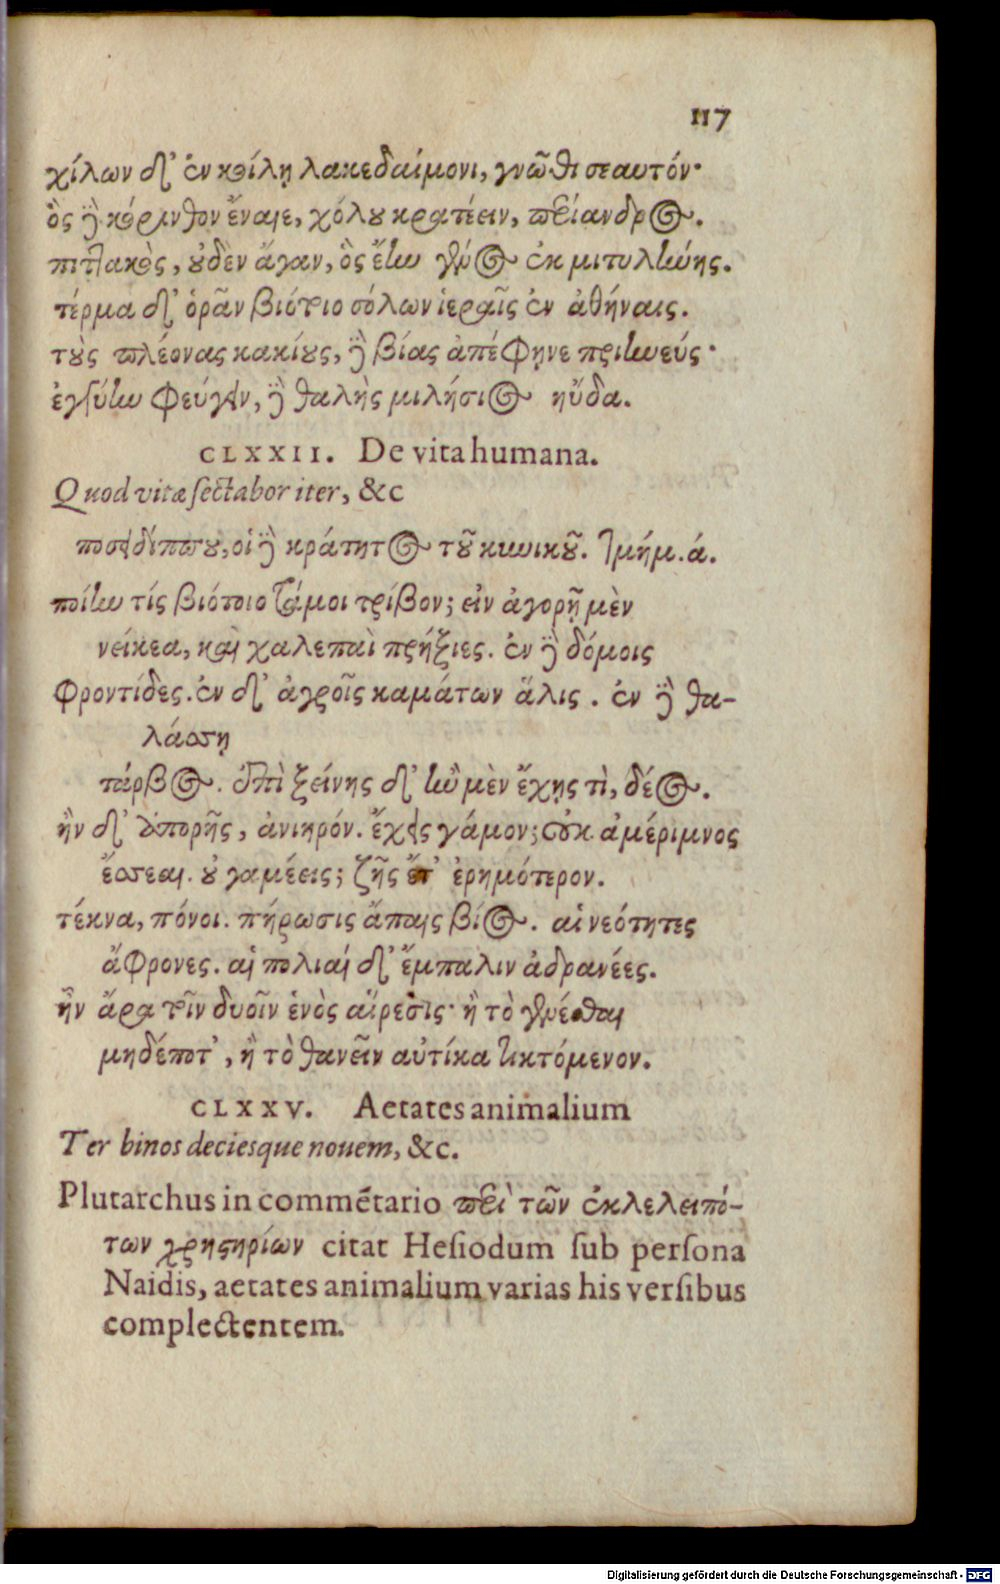 117
χίλων δ' ἐν κοίλῃ λακεδαίμονι, γνῶθι σεαυτόν·
ὃς δὲ κόρινθον ἔναιε, χόλου κρατέειν, περίανδρος.
πιττακὸς, οὐδὲν ἄγαν, ὃς ἔην γένος ἐκ μιτυλήνης.
τέρμα δ' ὁρᾶν βιότοιο σόλων ἱεραῖς ἐν ἀθήναις.
τοὺς πλέονας κακίους, δὲ βίας ἀπέφηνε πριηνεύς·
ἐγγύην φεύγειν, δὲ θαλὴς μιλήσιος ηὔδα.
CLXXII. De vita humana.
Quod vitæ sectabor iter, &c
ποσειδίππου, οἱ δὲ κράτητος τοῦ κυνικοῦ. τμήμ. ά.
ποίην τίς βιότοιο τάμοι τρίβον; εἰν ἀγορῇ μὲν
νείκεα, καὶ χαλεπαὶ πρήξιες. ἐν δὲ δόμοις
φροντίδες. ἐν δ' ἀγροῖς καμάτων ἅλις. ἐν δὲ θα-
λάσσῃ
τάρβος. ἐπὶ ξείνης δ' ἢν μὲν ἔχῃς τὶ, δέος.
ἢν δ' ἀπορῇς, ἀνιηρόν. ἔχεις γάμον; οὐκ ἀμέριμνος
ἔσσεαι. οὐ γαμέεις; ζῇς ἔτ' ἐρημότερον.
τέκνα, πόνοι. πήρωσις ἄπαις βίος. αἱ νεότητες
ἄφρονες. αἱ πολιαὶ δ' ἔμπαλιν ἀδρανέες.
ἢν ἄρα τοῖν δυοῖν ἑνὸς αἵρεσις· ἢ τὸ γενέσθαι
μηδέποτ', ἢ τὸ θανεῖν αὐτίκα τικτόμενον.
CLXXV. Aetates animalium
Ter binos deciesque nouem, &c.
Plutarchus in commētario περὶ τῶν ἐκλελειπό-
των χρηστηρίων citat Hesiodum sub persona
Naidis, aetates animalium varias his versibus
complectentem.
Digitalisierung gefördert durch die Deutsche Forschungsgemeinschaft - DFG